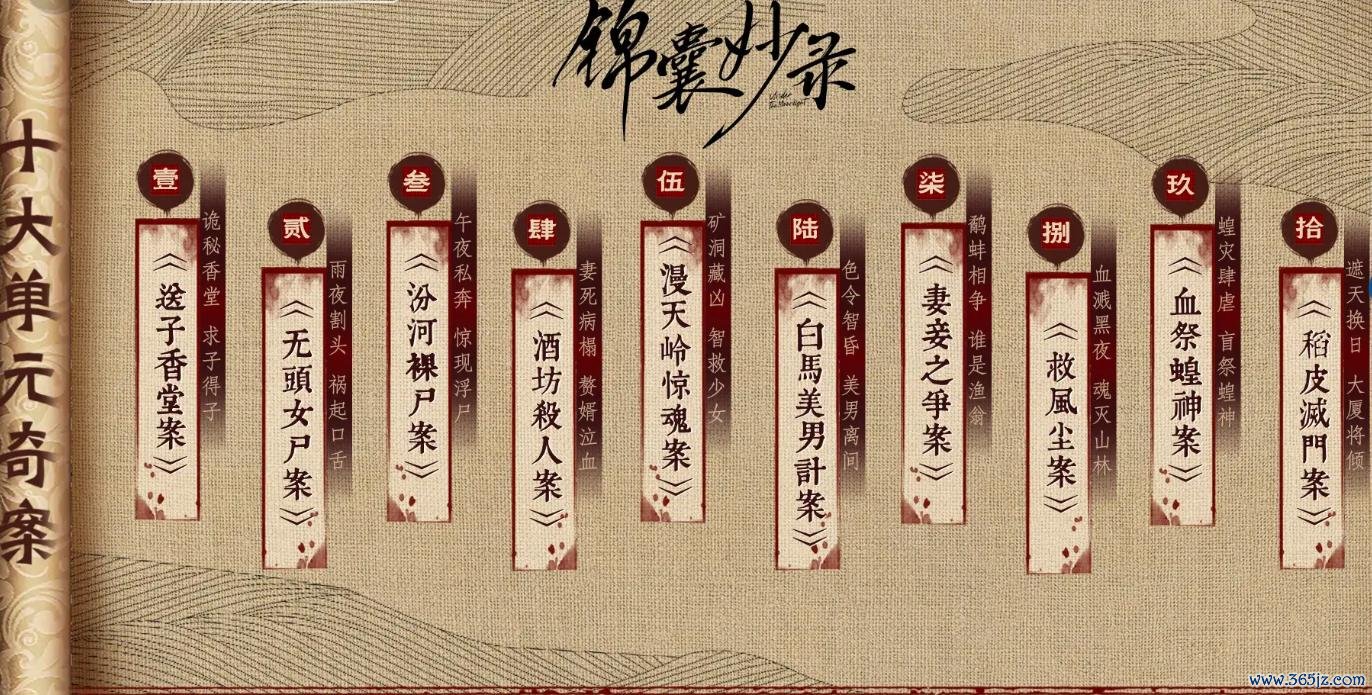 锦囊妙录
Under the Moonlight
十大单元奇案
壹
《送子香堂案》
诡秘香堂 求子得子
贰
《无頭女尸案》
雨夜割头 祸起口舌
叁
《汾河裸尸案》
午夜私奔 惊现浮尸
肆
《酒坊殺人案》
妻死病榻 赘婿泣血
伍
《漫天岭惊魂案》
矿洞藏凶 智救少女
陆
《白馬美男計案》
色令智昏 美男离间
柒
《妻妾之爭案》
鹬蚌相争 谁是渔翁
捌
《救風尘案》
血溅黑夜 魂灭山林
玖
《血祭蝗神案》
蝗灾肆虐 盲祭蝗神
拾
《稻皮滅門案》
遮天换日 大厦将倾
www.365jz.com